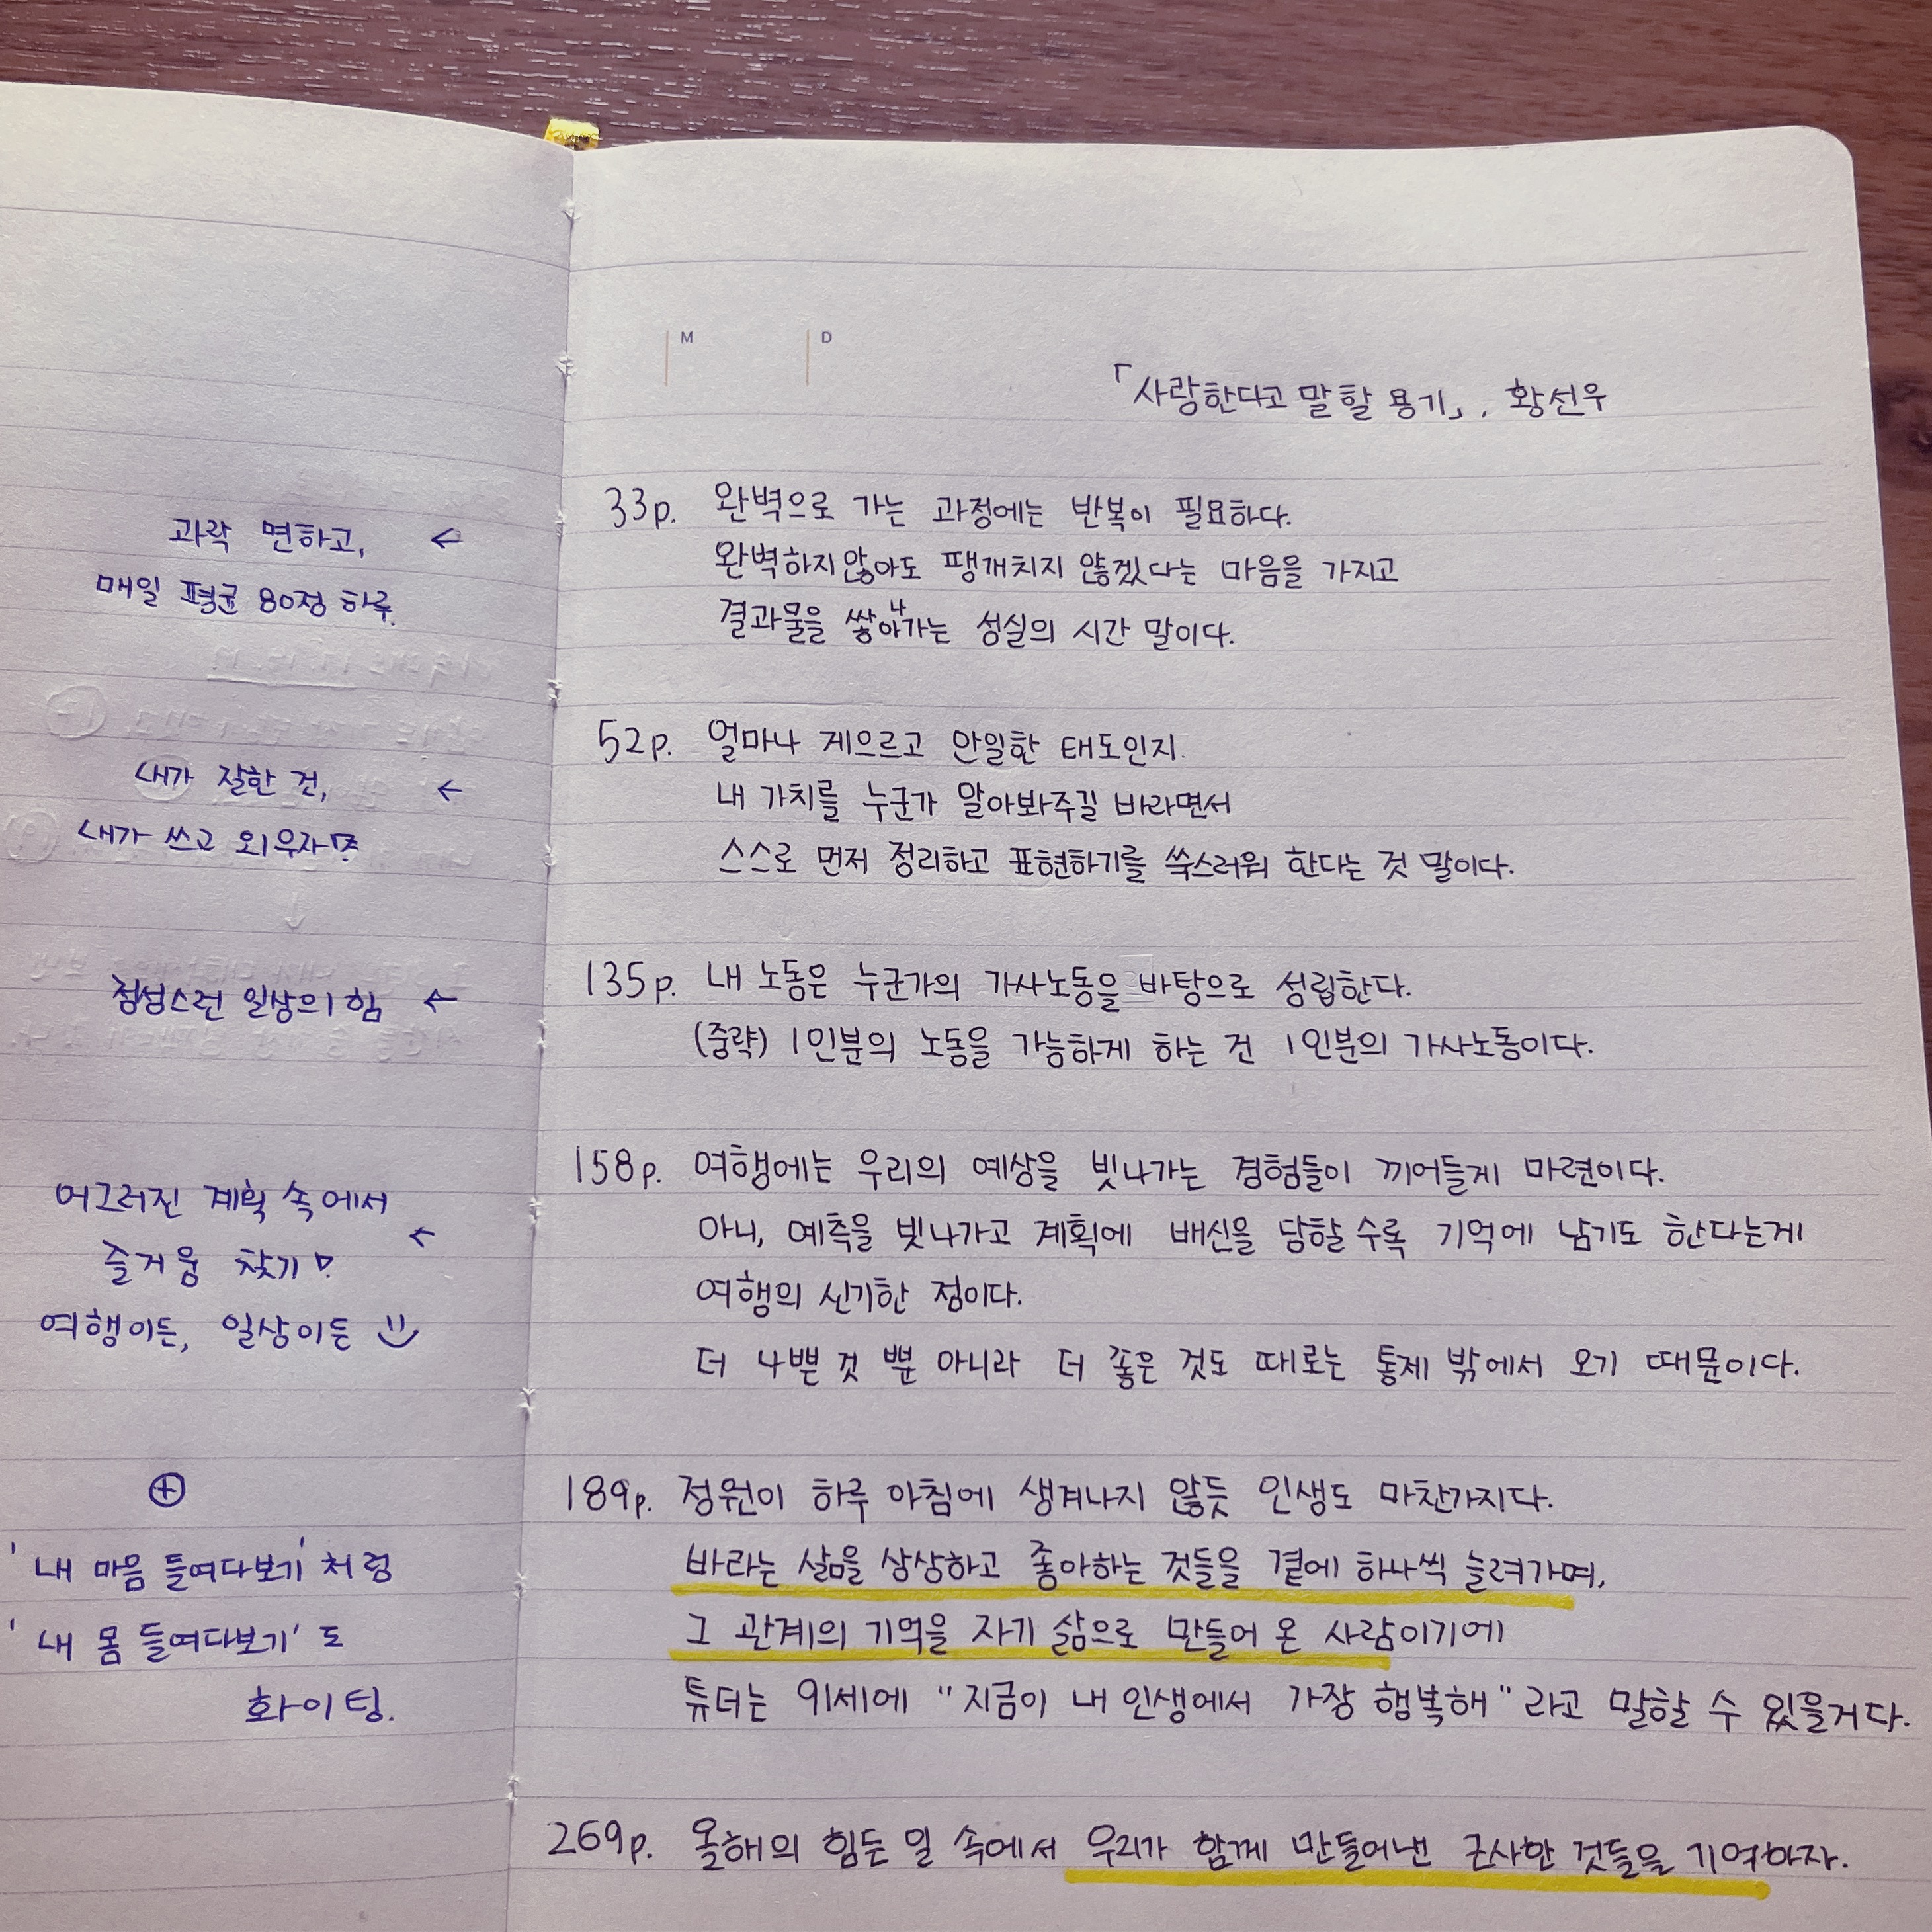 M D
「사랑한다고 말할 용기」, 황선우
33p. 완벽으로 가는 과정에는 반복이 필요하다.
완벽하지않아도 팽개치지 않겠다는 마음을 가지고
결과물을 쌓아나가는 성실의 시간 말이다.
52p. 얼마나 게으르고 안일한 태도인지.
내 가치를 누군가 알아봐주길 바라면서
스스로 먼저 정리하고 표현하기를 쑥스러워 한다는 것 말이다.
135p. 내 노동은 누군가의 가사노동을 바탕으로 성립한다.
(중략) 1인분의 노동을 가능하게 하는 건 1인분의 가사노동이다.
158p. 여행에는 우리의 예상을 빗나가는 경험들이 끼어들게 마련이다.
아니, 예측을 빗나가고 계획에 배신을 당할수록 기억에 남기도 한다는게
여행의 신기한 점이다.
더 나쁜 것 뿐 아니라 더 좋은 것도 때로는 통제 밖에서 오기 때문이다.
189p. 정원이 하루 아침에 생겨나지 않듯 인생도 마찬가지다.
바라는 삶을 상상하고 좋아하는 것들을 곁에 하나씩 늘려가며,
그 관계의 기억을 자기 삶으로 만들어 온 사람이기에
튜더는 91세에 "지금이 내 인생에서 가장 행복해"라고 말할 수 있을거다.
269p. 올해의 힘든 일 속에서 우리가 함께 만들어낸 근사한 것들을 기억하자.
과락 면하고, ←
매일 평균 80점 하루.
내가 잘한 건, ←
내가 쓰고 외우자!
정성스런 일상의 힘 ←
어그러진 계획 속에서
즐거움 찾기! ←
여행이든, 일상이든
⊕
'내 마음 들여다보기'처럼
'내 몸 들여다보기'도
화이팅.